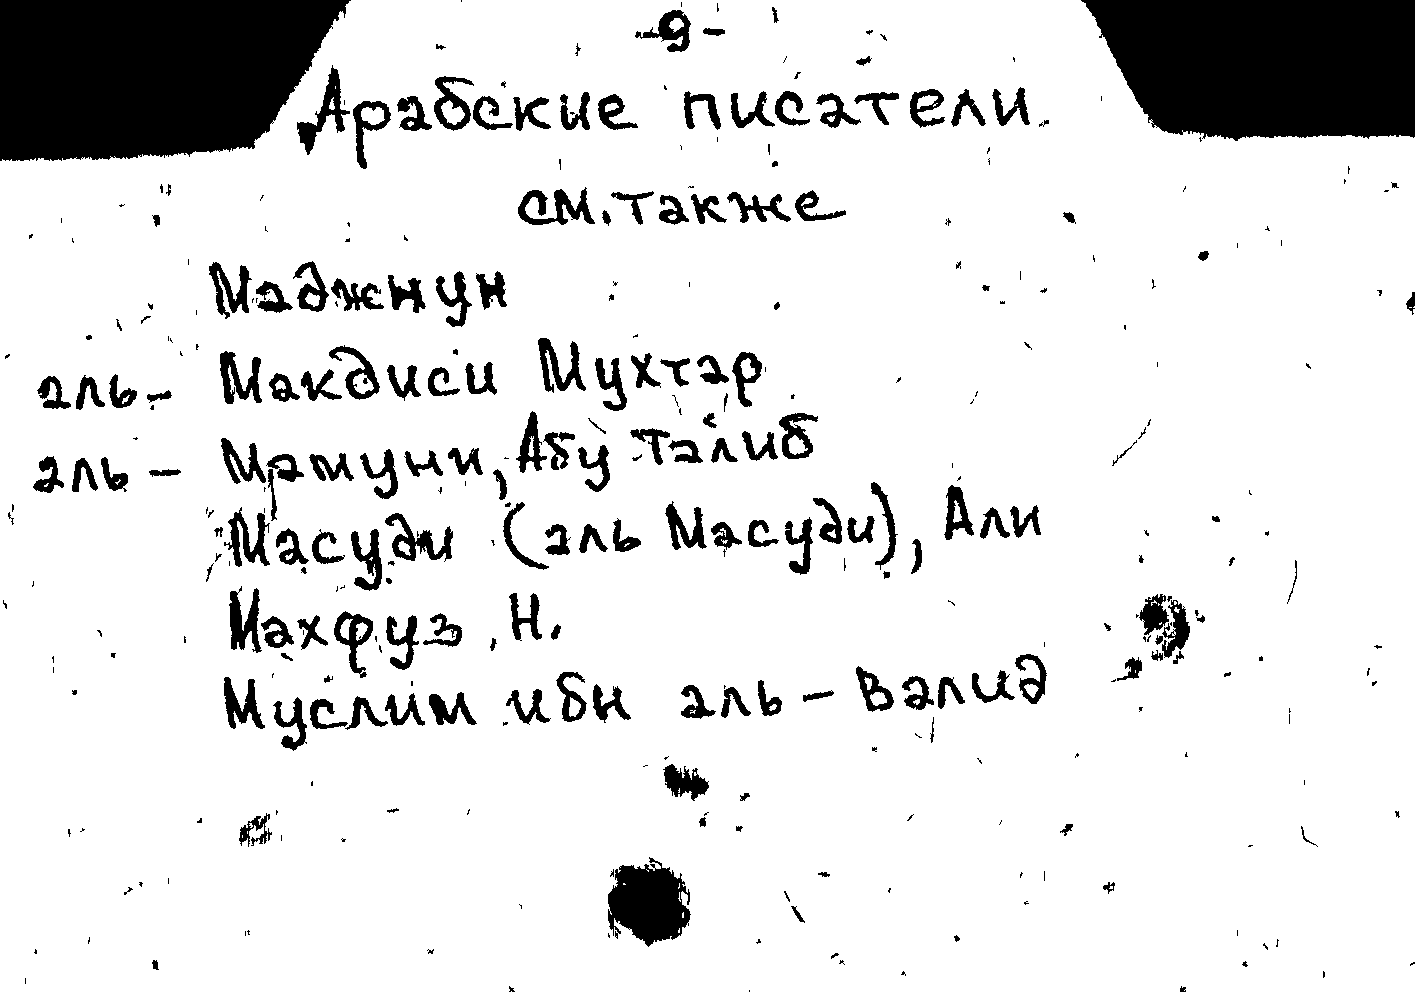 -9-
Арабские писатели.
см. также
Маджнун
аль- Макдиси Мухтар
аль- Мамуни, Абу Талиб
Масуди (аль Масуди), Али
Махфуз, Н.
Муслим ибн аль-Валид